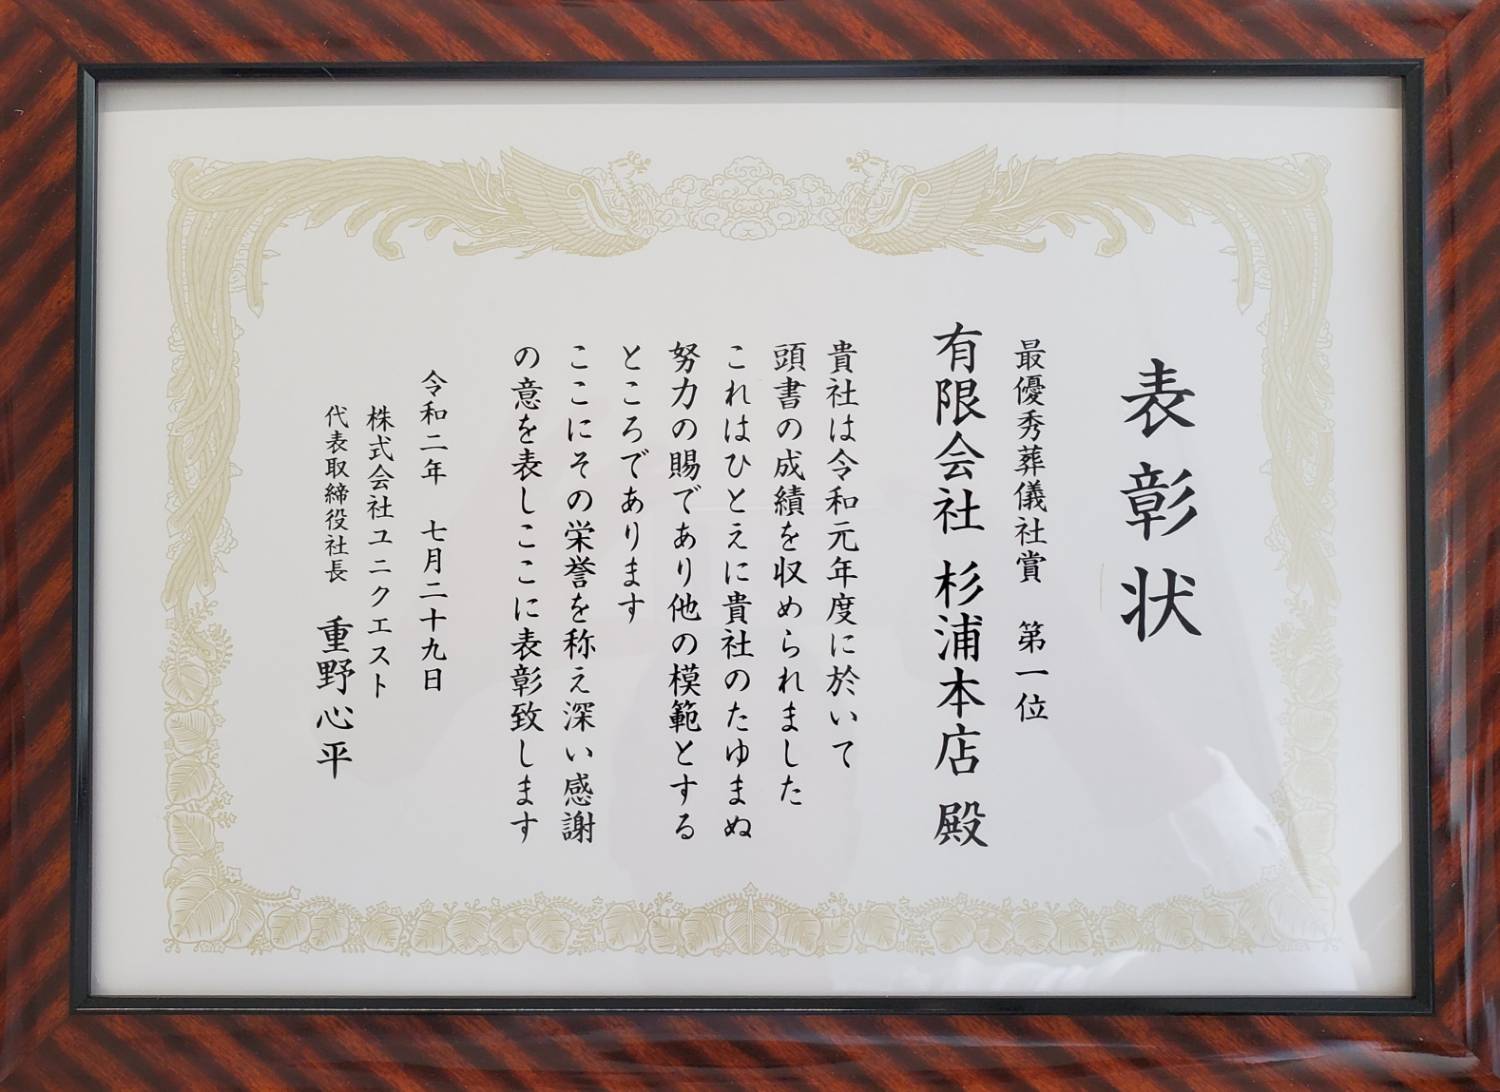 表彰状
最優秀葬儀社賞　第一位
有限会社 杉浦本店 殿
貴社は令和元年度に於いて
頭書の成績を収められました
これはひとえに貴社のたゆまぬ
努力の賜であり他の模範とする
ところであります
ここにその栄誉を称え深い感謝
の意を表しここに表彰致します
令和二年　七月二十九日
株式会社ユニクエスト
代表取締役社長　重野心平